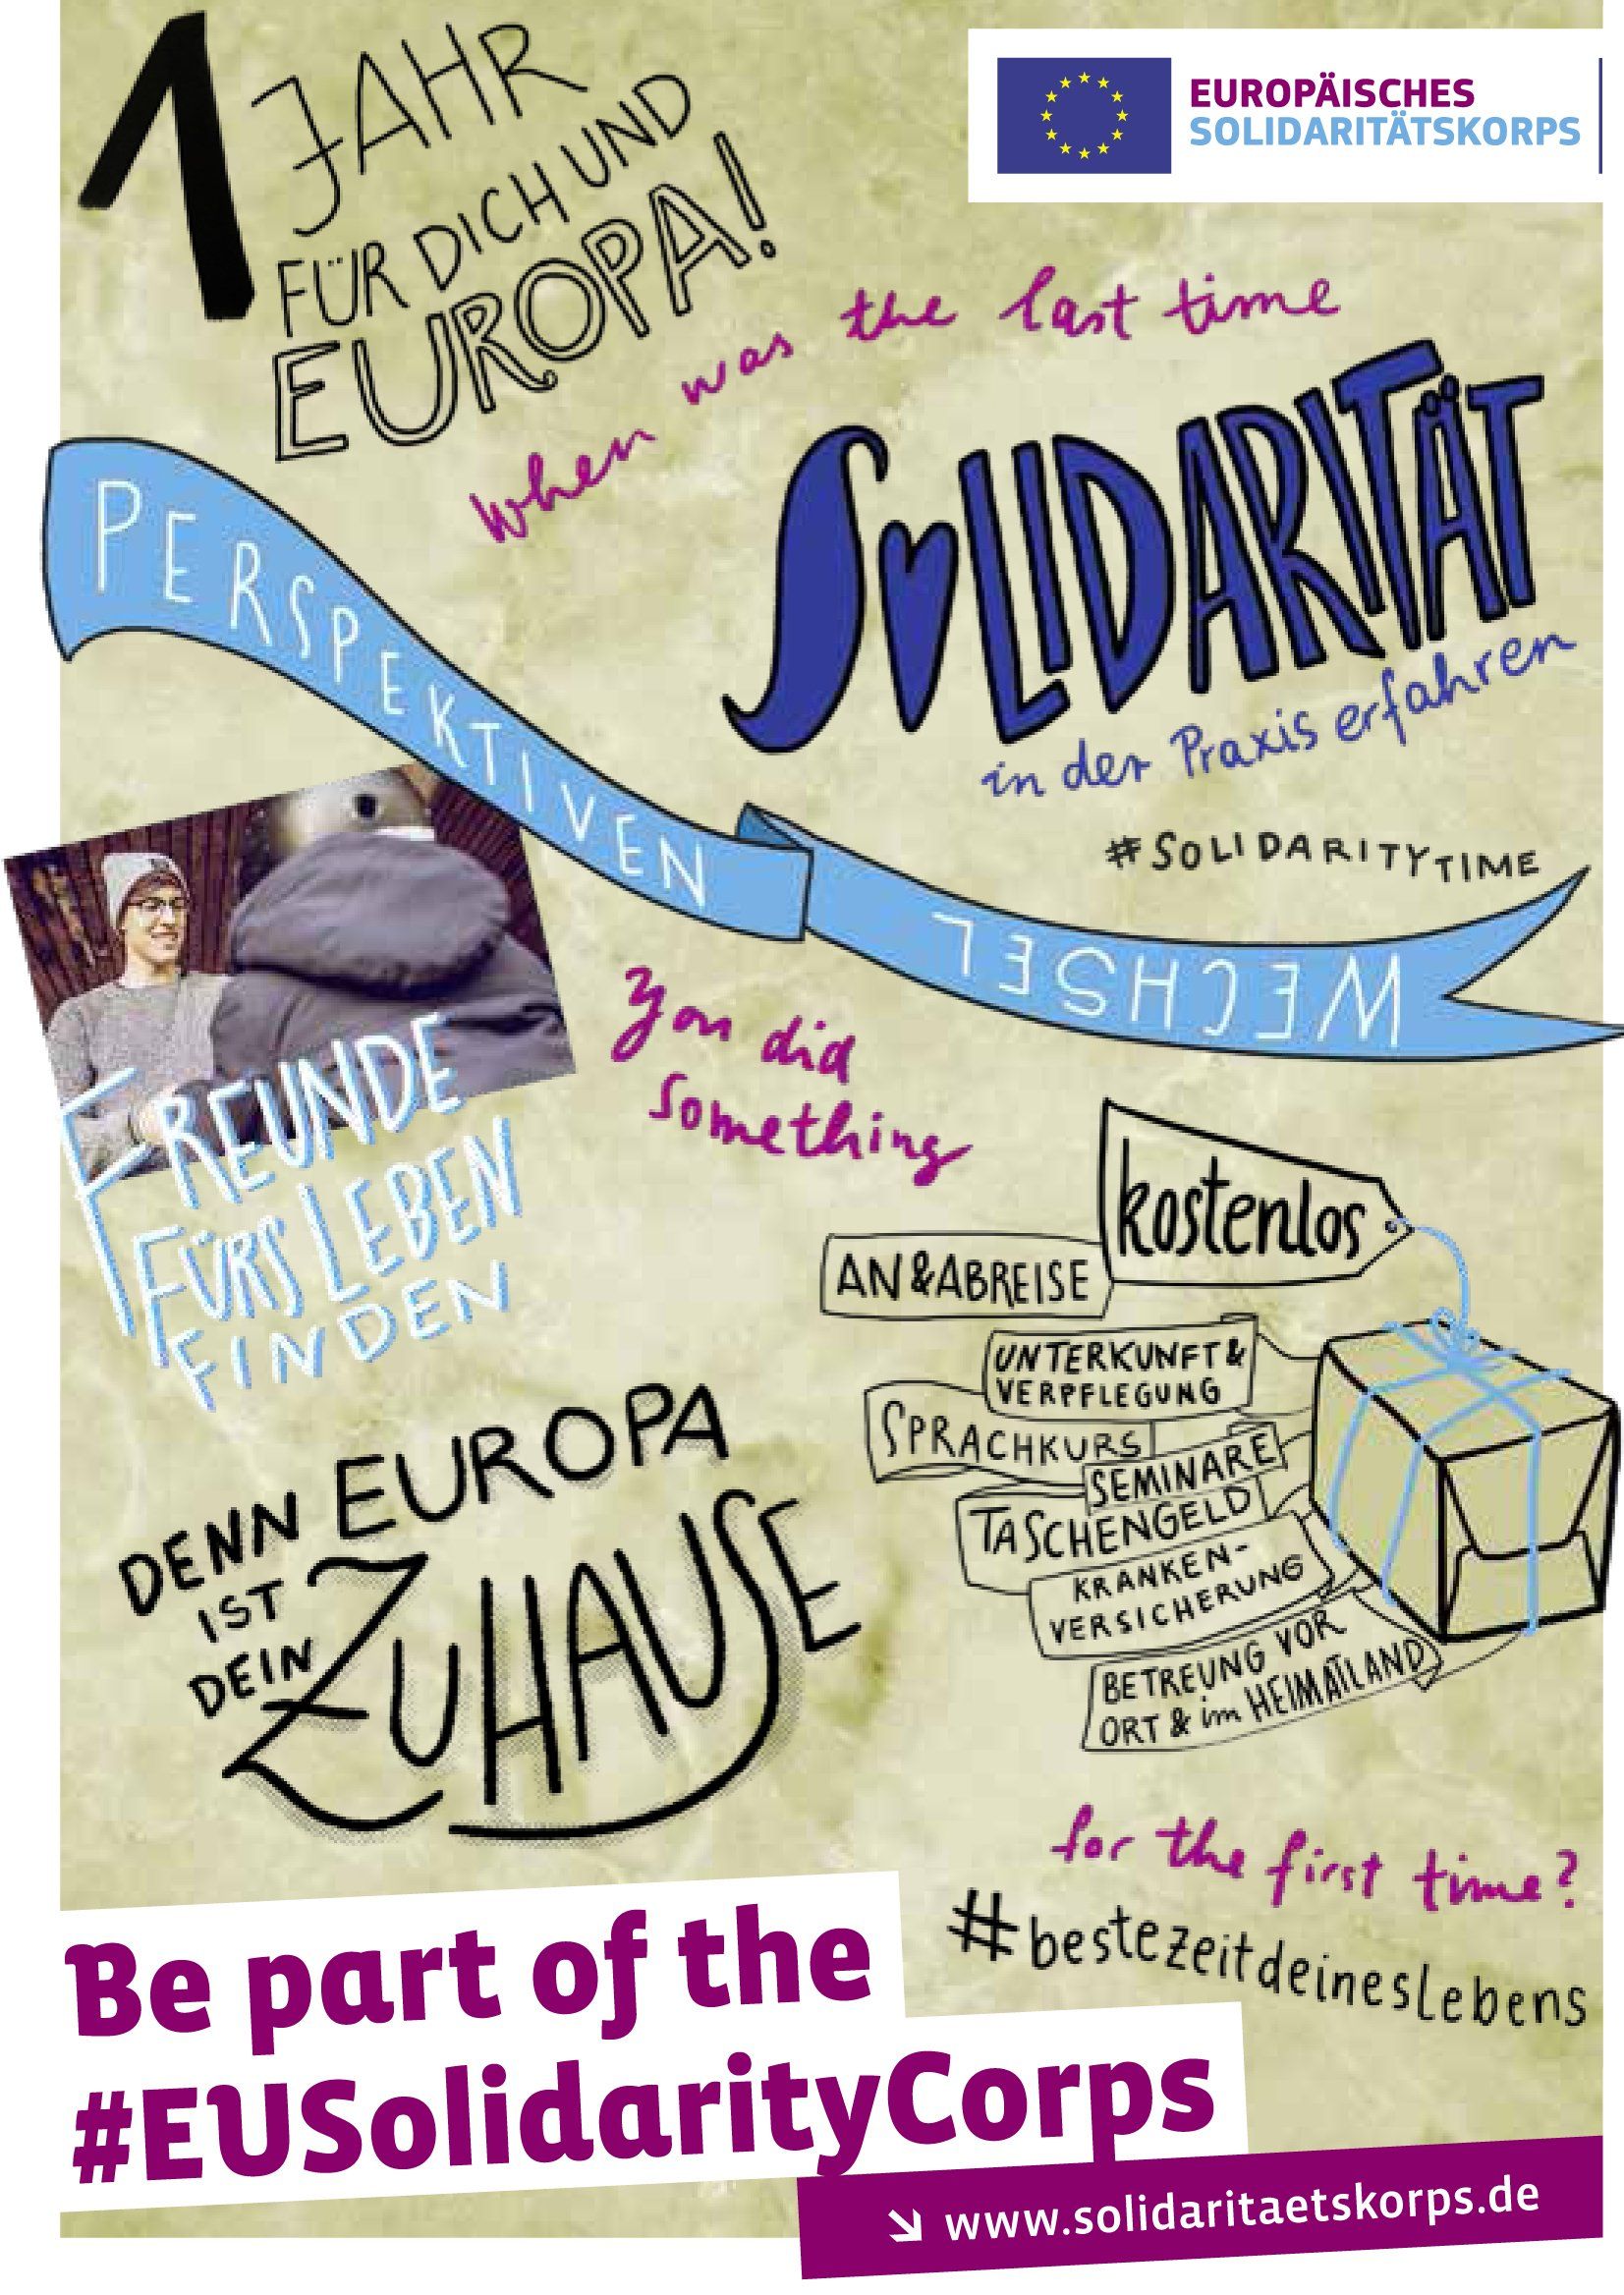 1 JAHR
FÜR DICH UND
EUROPA!
EUROPÄISCHES
SOLIDARITÄTSKORPS
when was the last time
SOLIDARITÄT
in der Praxis erfahren
#SOLIDARITYTIME
PERSPEKTIVEN
WECHSEL
You did
something
FREUNDE
FÜRS LEBEN
FINDEN
kostenlos
AN & ABREISE
UNTERKUNFT &
VERPFLEGUNG
SPRACHKURS
SEMINARE
TASCHENGELD
KRANKEN-
VERSICHERUNG
BETREUNG VOR
ORT & im HEIMATLAND
DENN EUROPA
IST
DEIN
ZUHAUSE
for the first time?
#bestezeitdeineslebens
Be part of the
#EUSolidarityCorps
www.solidaritaetskorps.de